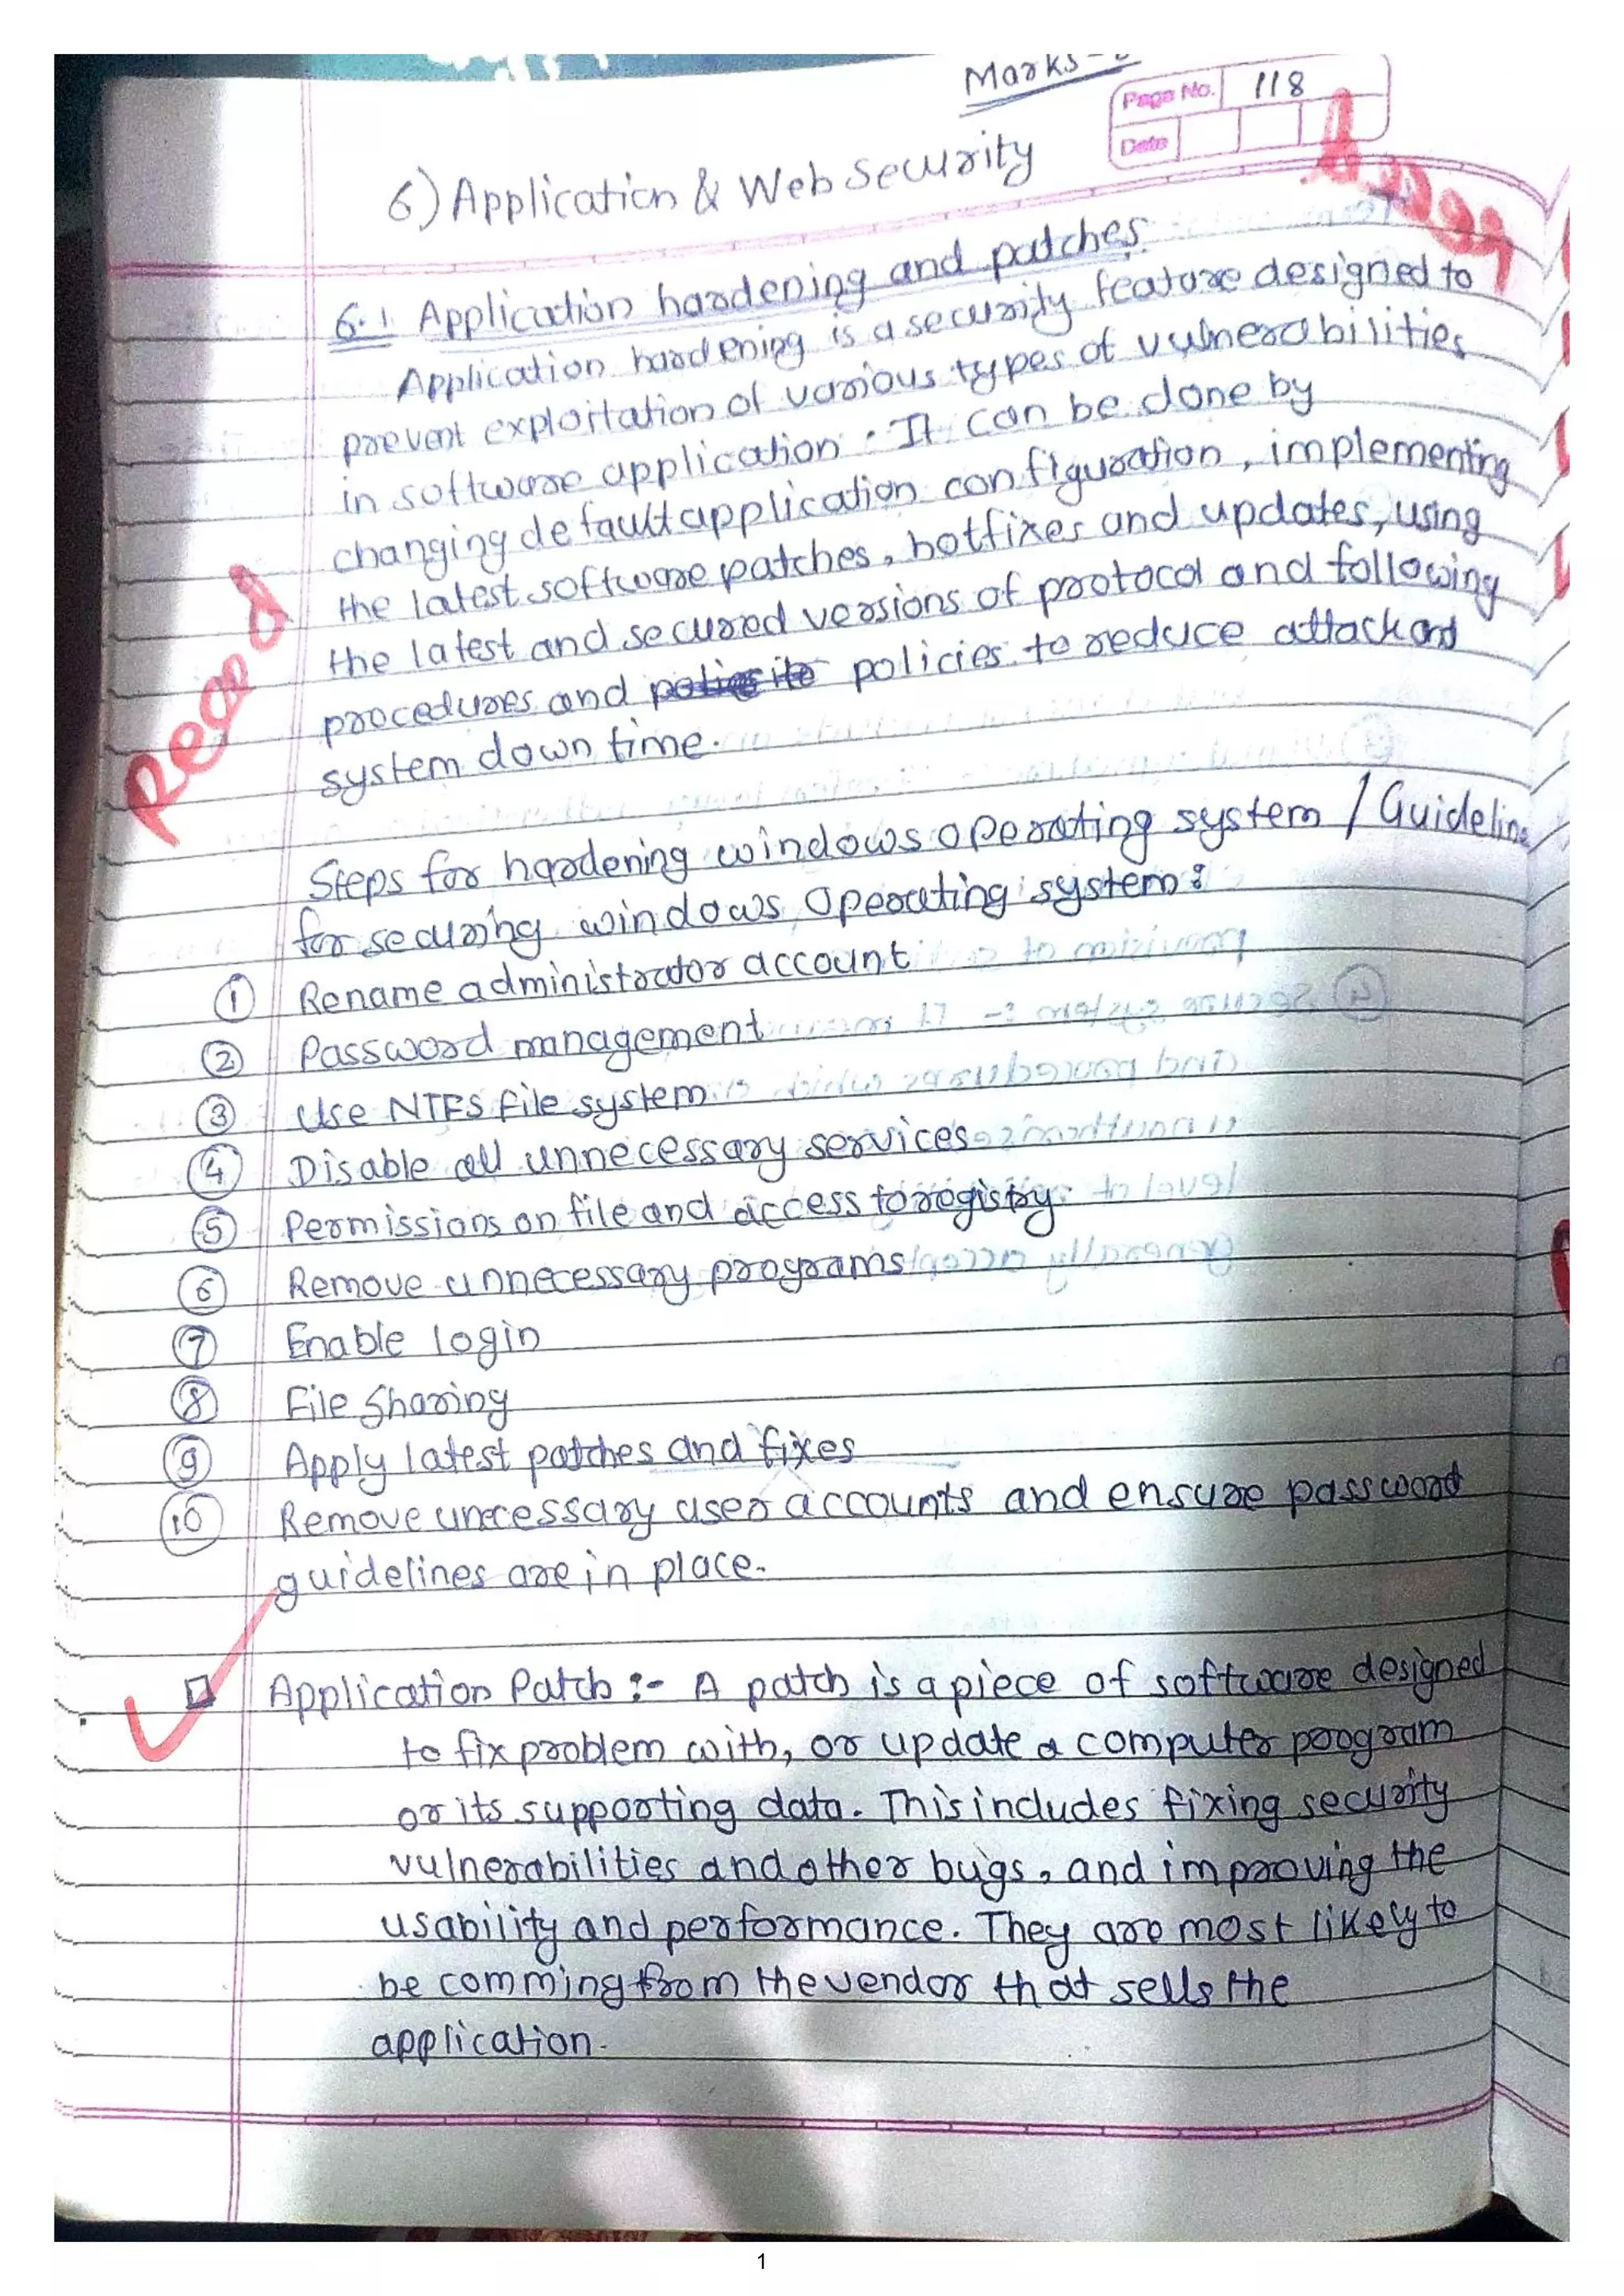 Marks-
Page No. 118
Date
6) Application & Web Security
6.1 Application hardening and patches.
Application hardening is a security feature designed to
prevent exploitation of various types of vulnerabilities
in software application. It can be done by
changing default application configuration, implementing
the latest software patches, hotfixes and updates, using
the latest and secured versions of protocol and following
procedures and policies to reduce attack and
system down time.
Read
Steps for hardening windows operating system / Guideline
for securing windows Operating system:
① Rename administrator account
② Password management
③ Use NTFS file system
④ Disable all unnecessary services
⑤ Permissions on file and access to registry
⑥ Remove unnecessary programs
⑦ Enable login
⑧ File Sharing
⑨ Apply latest patches and fixes
⑩ Remove unecessary user accounts and ensure password
guidelines are in place.
Application Patch :- A patch is a piece of software designed
to fix problem with, or update a computer program
or its supporting data. This includes fixing security
vulnerabilities and other bugs, and improving the
usability and performance. They are most likely to
be comming from the vendor that sells the
application.
1